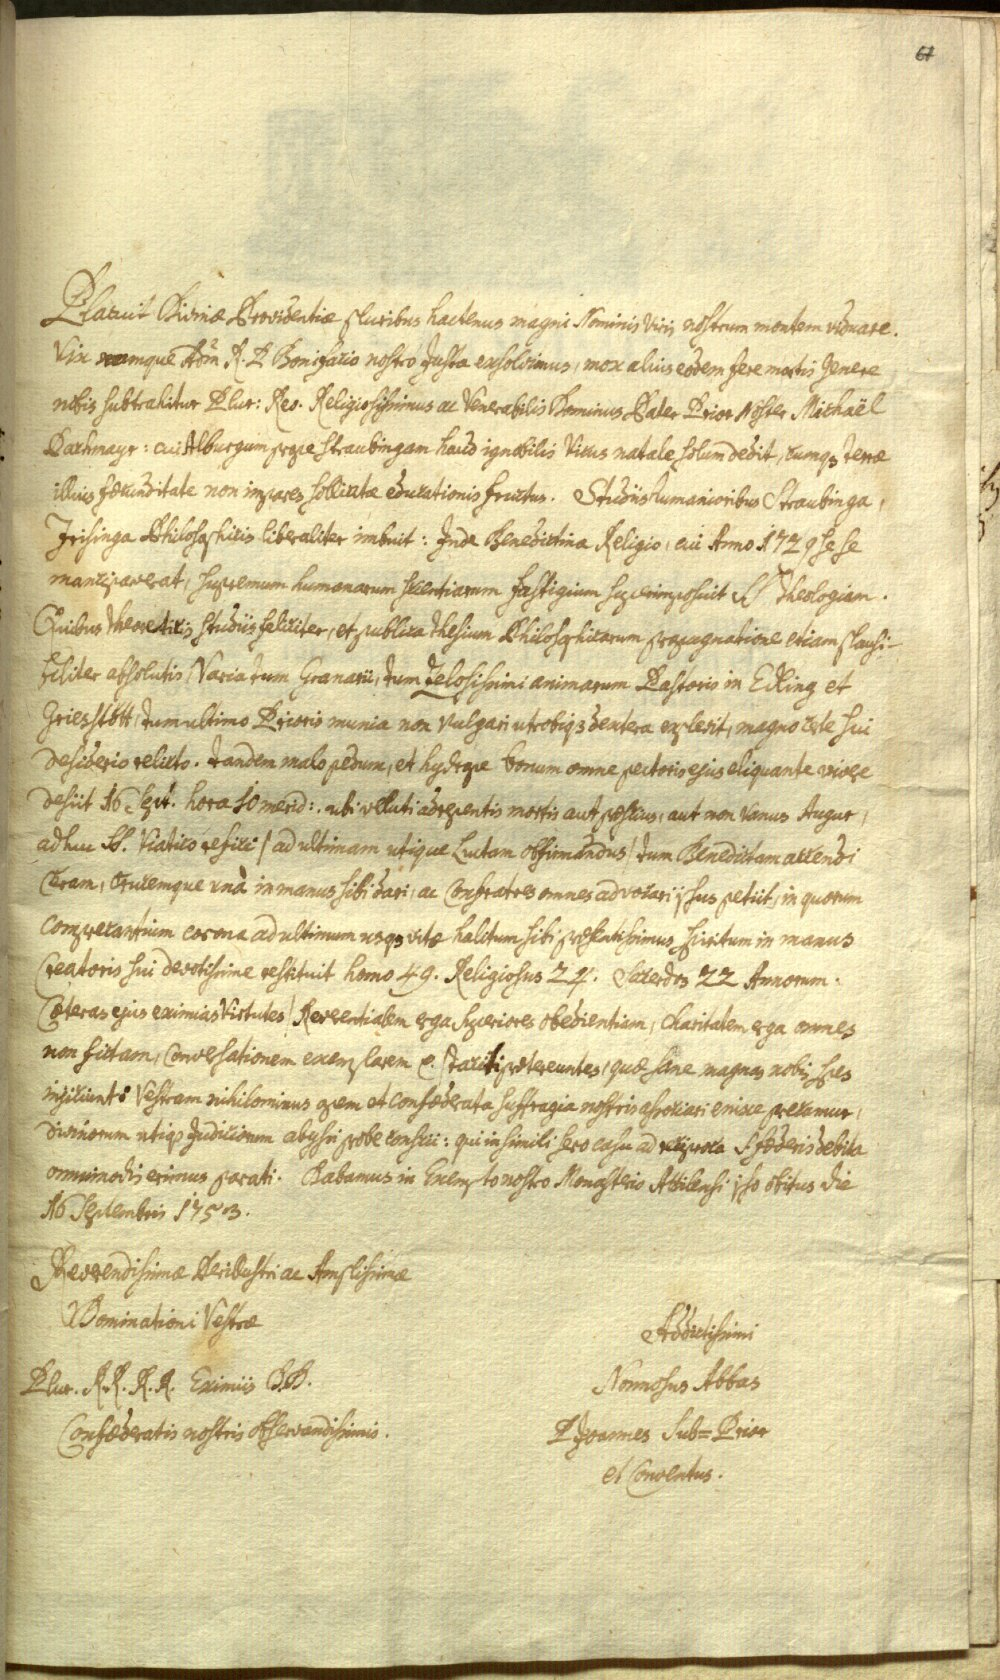 61
Placuit Divinæ Providentiæ pluribus hactenus magni Nominis Viris nostrum montem viduare.
Vix namque A. R. P. Bonifacio nostro justa exsolvimus, mox alius eodem fere mortis genere
nobis subtrahitur Plur: Rev. Religiosissimus ac Venerabilis Dominus Pater Prior Noster Michaël
Parkmayr: cui Alburgum prope Straubingam haud ignobilis Vicus natale solum dedit, cumq3 terræ
illius fœcunditate non impares sollicitæ educationis fructus. Studiis humanioribus Straubinga,
Frisinga Philosophicis liberaliter imbuit: Inde Benedictina Religio, cui Anno 1729 sese
manciparerat, supremum humanarum scientiarum fastigium superimposuit SS Theologiam.
Quibus theoreticis studiis feliciter, et publica thesium Philosophicarum propugnatione etiam plausi-
biliter absolutis, Varia tum Granarii, tum zelosissimi animarum Pastoris in Edling et
Griesstött, tum ultimo Prioris munia non vulgari utrobiq3 dextera explevit, magno sui
desiderio relicto. tandem malo pedum, et hydrope bonum omne pectoris ejus eliquante vivere
desiit 16 Sept. hora 10 merid:. ubi veluti adrepentis mortis aut præscius, aut non vanus Augur,
adhuc SS. Viatico refici / ad ultimam utique Luctam obfirmandus / tum Benedictam accendi
Ceram, Crucemque unà in manus sibi dari, ac Confratres omnes advocari ipsus petiit, in quorum
comprecantium corona ad ultimum usq3 vitæ halitum sibi præsentissimus spiritum in manus
Creatoris sui devotissime restituit homo 49. Religiosus 24. Sacerdos 22 Annorum.
Cæteras ejus eximias Virtutes / Reverentialem erga superiores obedientiam, Charitatem erga omnes
non fictam, Conversationem exemplarem taciti prætereuntes, quæ sane magnas nobis spes
injiciunt: Vestram nihilominus opem et confœderata suffragia nostris associari enixe precamur,
divinorum utiq3 Judiciorum abyssi probe conscii: qui in simili sero casu ad reciproca S. fœderis debita
omnimodis erimus parati. Dabamus in Exempto nostro Monasterio Attilensi ipso obitus die
16 Septembris 1753.
Reverendissimæ Perillustri ac Amplissimæ
Dominationi Vestræ
Addictissimi
Plur. R.R. R.R. Eximiis D.D.
Nonnosus Abbas
Confœderatis nostris observandissimis.
P Joannes Sub=Prior
et Conventus.